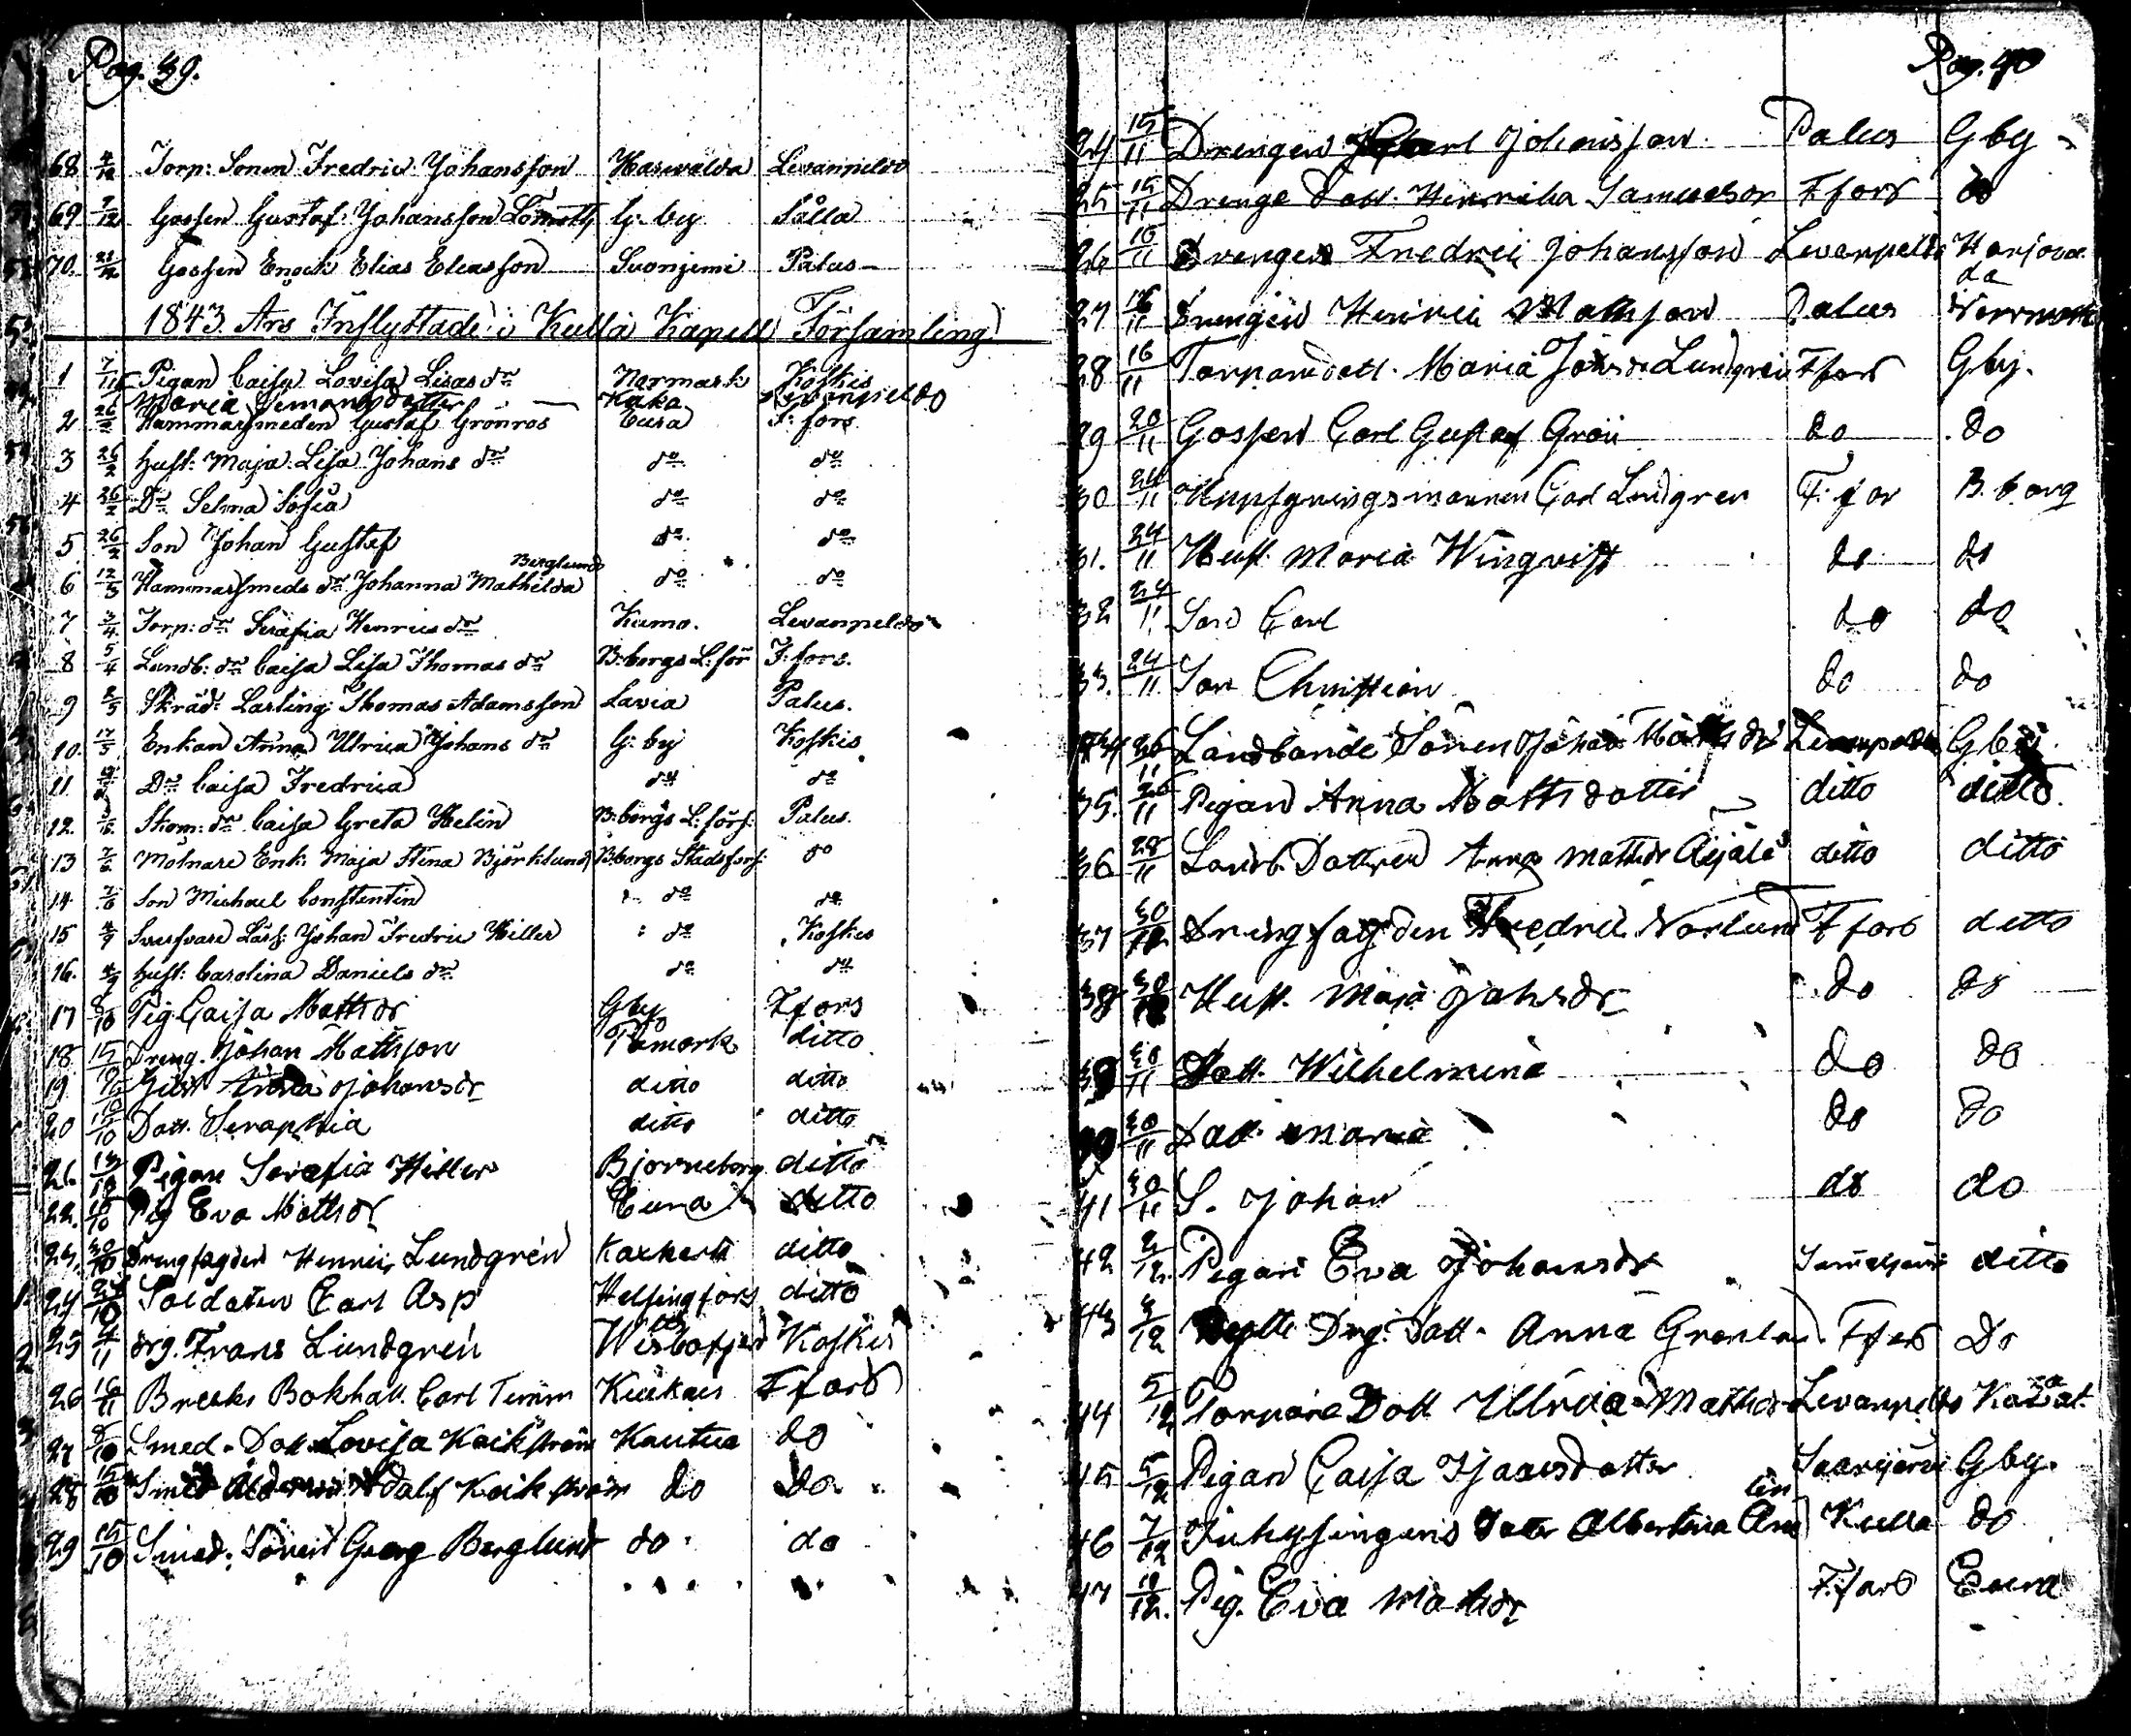 Pag. 39.
68 4/12 Torp: Sonen Fredric Johansson Harwalda Levanpeldo
69 7/12 Gossen Gustaf Johansson G: by Sålla
70. 21/12 Gossen Enock Elias Eliasson Suonjemi Palus
1843 Ars Inflyttade i Kulla Kapell Församling
1 7/11 Pigan Caisa Lovisa Lisas dr Normark Koskis
Maria Simonsdotter Kaka Levanpeldo
2 26/2 Hammarsmeden Gustaf Grönros Eura F: fors
3 26/2 Hust: Maja Lisa Johans dr do do
4 26/2 Dr Selma Sofia do do
5 26/2 Son Johan Gustaf do do
Berglund
6 12/3 Hammarsmeds dr Johanna Mathilda do do
7 3/4 Torp: dr Serafia Henrics dr Kumo. Levanpeldo
8 5/4 Landb: dr Caisa Lisa Thomas dr B:borgs L: för F: fors.
9 2/5 Skräd: Lärling Thomas Adamsson Lavia Palus.
10. 17/5 Enkan Anna Ulrica Johans dr G: by Koskis
11 Dr Caisa Fredrica do do
12. Skom: dr Caisa Greta Helin B:borgs L: förs: Palus.
13 Mölnare Enk: Maja Stina Björklund B:borgs Stadsförs: do
14. 7/6 Son Michael Constantin do do
15 4/9 Svarfvare Lärl: Johan Fredric Hiller do Koskis
16. 4/9 Hust: Carolina Daniels dr do do
17 8/10 Pig. Caisa Mattsdr Gby Ffors
18. 15/10 Dreng. Johan Mattsson Påmark ditto
19 Anna Johansdr ditto ditto
20 15/10 Dott. Seraphia ditto ditto
Pigan Serafia Hiller Bjorneborg ditto
22. Pig Eva Mattsdr Eura ditto
23. 20/10 Drengfogden Henric Lundgrén ditto
24 Soldaten Carl Asp Helsingfors ditto
25 4/11 drg. Frans Lundgrén Koskis
26 16/11 Bruks Bokhåll. Carl Timm Kiukais Ffors
27 Smed. Dott. Lovisa Kautua do
28 15/10 Smed do do
29 15/10 Smed: Sönen Georg Berglund do do
Pag. 40
24 15/11 Drengen Johansson Palus Gby
25 15/11 Drenge Dott. Henrika Samuelsdr Ffors do
26 Drengen Fredric Johansson Levanpeldo Harjova
da
27 16/11 Drengen Henric Mattsson Palus Norrmark
28 16/11 Torparedott. Maria Johsdr Lundgrén Ffors Gby.
29 20/11 Gossen Carl Gustaf Grön do do
30 24/11 Carl Lindgren F: for B. borg
31. 24/11 Hust. Maria Wingvist do do
32 24/11 Son Carl do do
33. 24/11 Son Christian do do
34 26/11 Landbonde Sonen Johan Gby
35. 26/11 Pigan Anna Mattsdotter ditto ditto
36 28/11 Landb. Dottren Anna Mattsdr Äijälä ditto ditto
37 Drengfogden Fredric Norlund Ffors ditto
38 Hust. Maja Johsdr do do
39 30/11 Dott. Wilhelmina do do
30/11 Dott. Maria do do
41 30/11 S. Johan do do
42 2/12 Pigan Eva Johansdr ditto
43 3/12 Drg. Dott. Anna Ffors Do
44 5/12 Torpare Dott Ulrica Mattsdr Levanpeldo
45 5/12 Pigan Caisa Isaacsdotter Saarijärvi Gby.
46 7/12 Inhysingens Dotter Albertina Kulla do
47 Pig. Eva Matsdr F:fors Eura